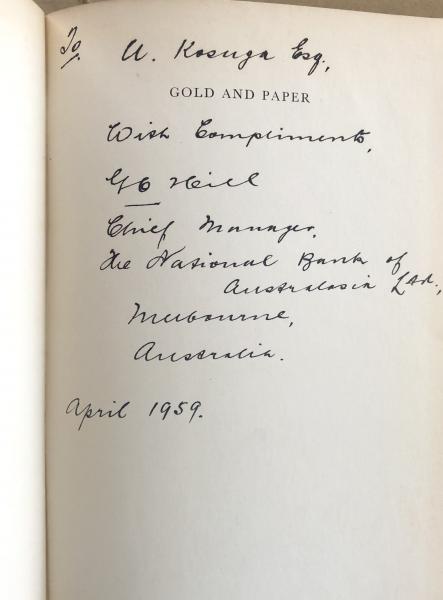 To U. Kosuga Esq.,
GOLD AND PAPER
With Compliments,
Hill
Chief Manager,
The National Bank of
Australasia Ltd.,
Melbourne,
Australia.
April 1959.